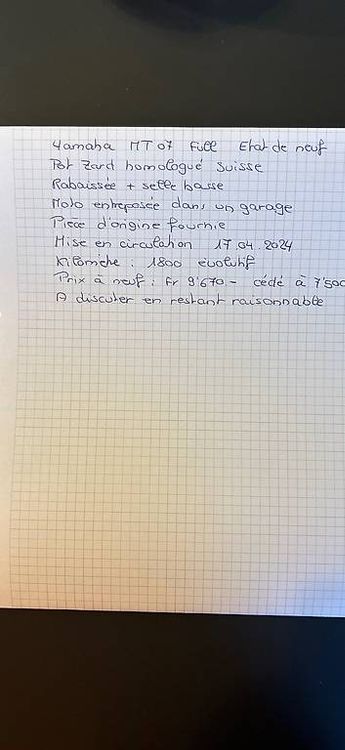 Yamaha MT 07 Full Etat de neuf
Pot Zard homologué Suisse
Rabaissée + selle basse
Moto entreposée dans un garage
Pièce d'origine fournie
Mise en circulation 17.04.2024
Kilomètre : 1800 évolutif
Prix à neuf : Fr 9'670.- cédé à 7'500
A discuter en restant raisonnable